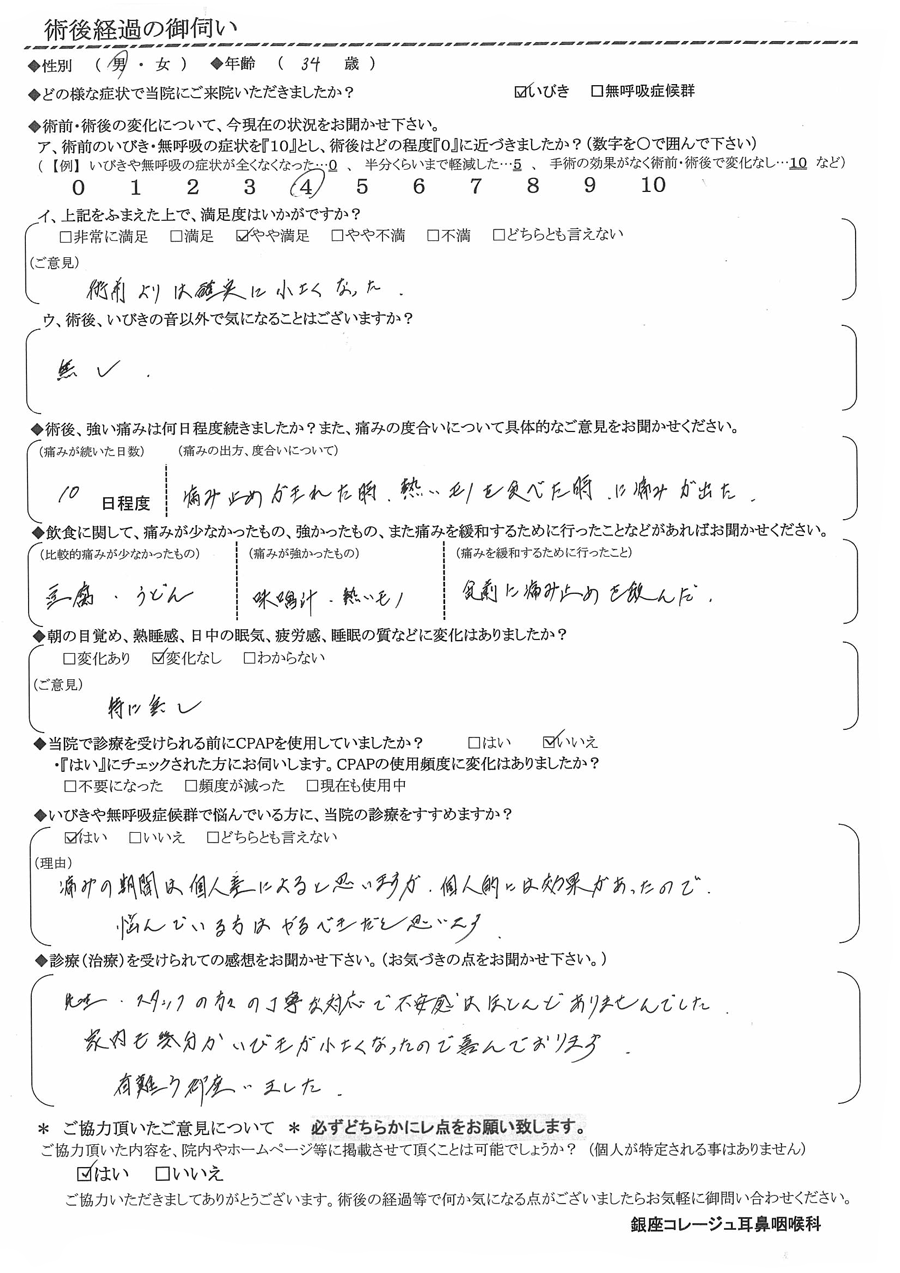 術後経過の御伺い
◆性別 ( 男 ・ 女 ) ◆年齢 ( 34 歳 )
◆どの様な症状で当院にご来院いただきましたか? ☑いびき □無呼吸症候群
◆術前・術後の変化について、今現在の状況をお聞かせ下さい。
ア、術前のいびき・無呼吸の症状を『10』とし、術後はどの程度『0』に近づきましたか?(数字を〇で囲んで下さい)
(【例】 いびきや無呼吸の症状が全くなくなった…0 、 半分くらいまで軽減した…5 、 手術の効果がなく術前・術後で変化なし…10 など)
0 1 2 3 4 5 6 7 8 9 10
イ、上記をふまえた上で、満足度はいかがですか?
□非常に満足 □満足 ☑やや満足 □やや不満 □不満 □どちらとも言えない
(ご意見)
術前よりは確実に小さくなった.
ウ、術後、いびきの音以外で気になることはございますか?
無し.
◆術後、強い痛みは何日程度続きましたか?また、痛みの度合いについて具体的なご意見をお聞かせください。
(痛みが続いた日数) (痛みの出方、度合いについて)
10 日程度 痛み止めがきれた時.熱いモノを食べた時.に痛みが出た.
◆飲食に関して、痛みが少なかったもの、強かったもの、また痛みを緩和するために行ったことなどがあればお聞かせください。
(比較的痛みが少なかったもの) (痛みが強かったもの) (痛みを緩和するために行ったこと)
豆腐・うどん 味噌汁・熱いモノ 食前に痛み止めを飲んだ.
◆朝の目覚め、熟睡感、日中の眠気、疲労感、睡眠の質などに変化はありましたか?
□変化あり ☑変化なし □わからない
(ご意見)
特に無し
◆当院で診療を受けられる前にCPAPを使用していましたか? □はい ☑いいえ
・『はい』にチェックされた方にお伺いします。CPAPの使用頻度に変化はありましたか?
□不要になった □頻度が減った □現在も使用中
◆いびきや無呼吸症候群で悩んでいる方に、当院の診療をすすめますか?
☑はい □いいえ □どちらとも言えない
(理由)
痛みの期間は個人差によると思いますが.個人的には効果があったので.
悩んでいる方はやるべきだと思います.
◆診療(治療)を受けられての感想をお聞かせ下さい。(お気づきの点をお聞かせ下さい。)
先生・スタッフの方々の丁寧な対応で不安感はほとんどありませんでした.
家内も幾分かいびきが小さくなったので喜んでおります.
有難う御座いました.
* ご協力頂いたご意見について * 必ずどちらかにレ点をお願い致します。
ご協力頂いた内容を、院内やホームページ等に掲載させて頂くことは可能でしょうか? (個人が特定される事はありません)
☑はい □いいえ
ご協力いただきましてありがとうございます。術後の経過等で何か気になる点がございましたらお気軽に御問い合わせください。
銀座コレージュ耳鼻咽喉科